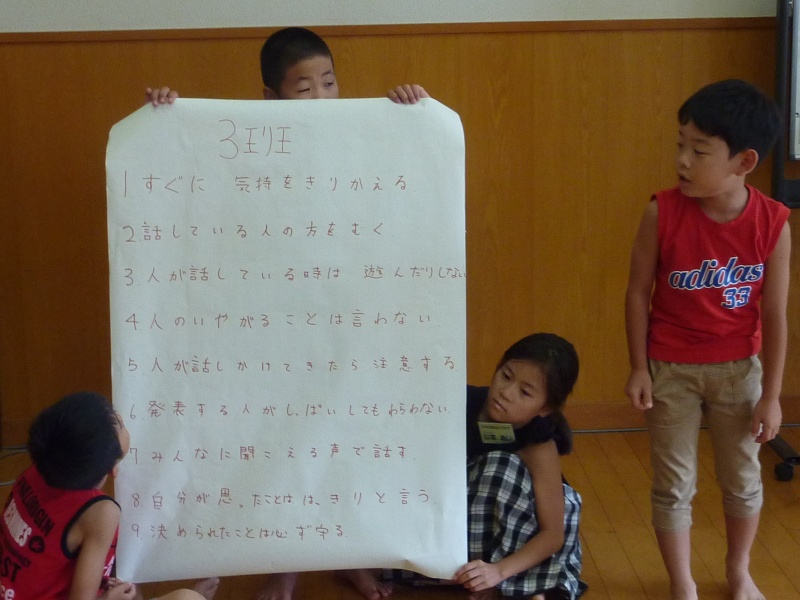 3班
1 すぐに 気持をきりかえる
2 話している人の方をむく
3 人が話している時は 遊んだりしない
4 人のいやがることは言わない
5 人が話しかけてきたら注意する
6 発表する人がしっぱいしてもわらわない
7 みんなに聞こえる声で話す
8 自分が思ったことははっきりと言う
9 決められたことは必ず守る
adidas
33